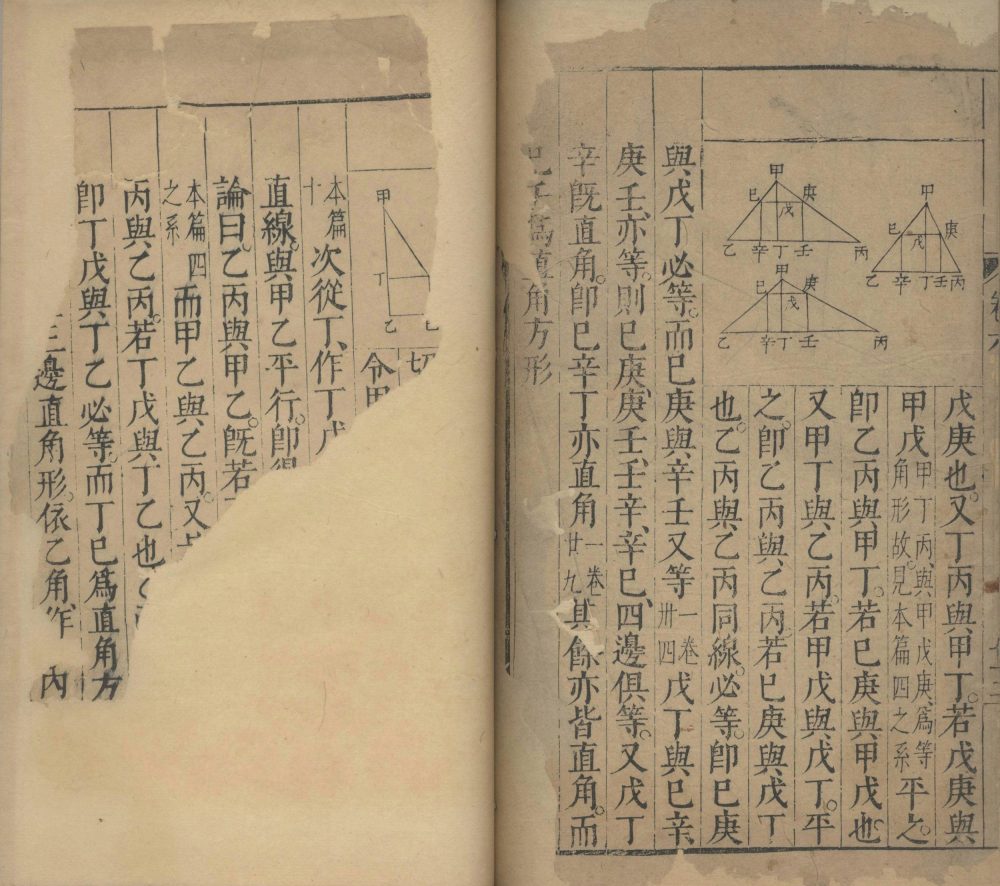 卷六
甲
巳 戊 庚
乙 辛 丁 壬 丙
甲
巳 戊 庚
乙 辛 丁 壬 丙
甲
巳 戊 庚
乙 辛 丁 壬 丙
戊庚也。又丁丙與甲丁。若戊庚與
甲戊甲丁丙、與甲戊庚、爲等角形故。見本篇四之系平之。
即乙丙與甲丁。若巳庚與甲戊也
又甲丁與乙丙。若甲戊與戊丁。平
之。即乙丙與乙丙若巳庚與戊丁
也。乙丙與乙丙同線。必等。即巳庚
與戊丁必等。而巳庚與辛壬又等一卷卅四戊丁與巳辛
庚壬亦等。則巳庚、庚壬、壬辛、辛巳、四邊俱等。又戊丁
辛既直角。即巳辛丁亦直角一卷廿九其餘亦皆直角。而
巳壬爲直角方形
甲
丁
乙
切
令甲
本篇十次從丁、作丁戊
直線。與甲乙平行。即得
論曰。乙丙與甲乙。既若
本篇四之系而甲乙與乙丙。又
丙與乙丙。若丁戊與丁乙也
即丁戊與丁乙必等。而丁巳爲直角方
三邊直角形。依乙角、作 內